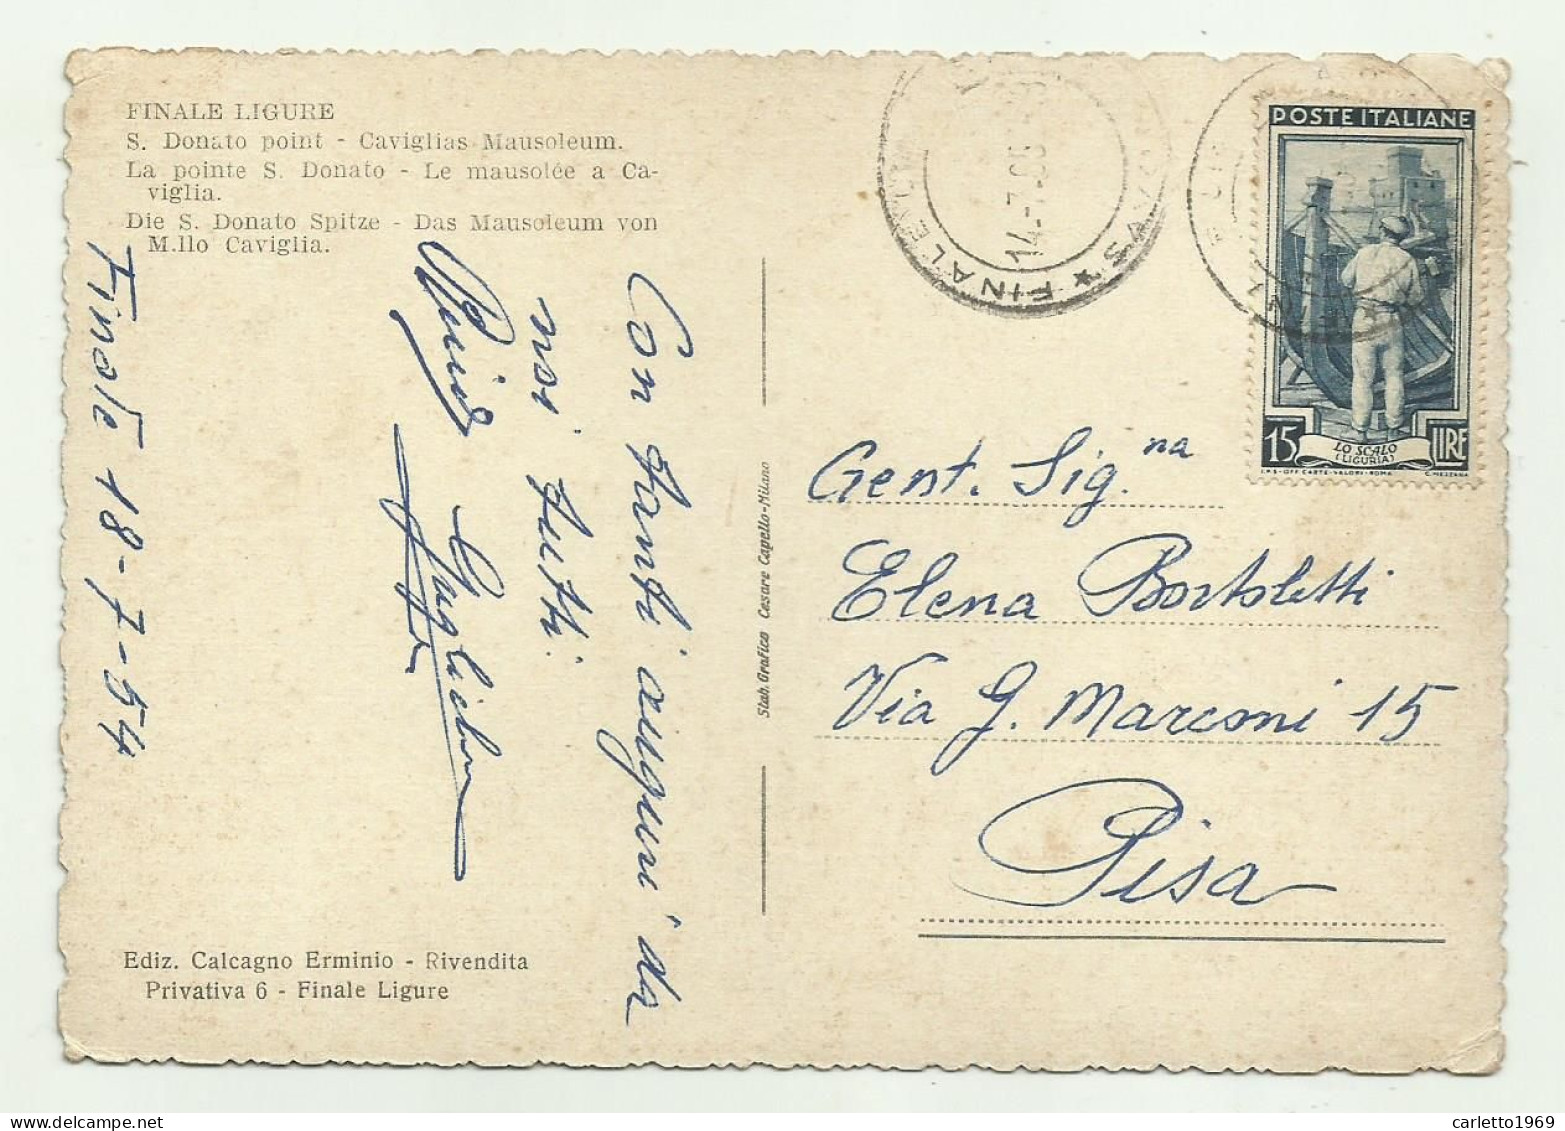 FINALE LIGURE
S. Donato point - Caviglias Mausoleum.
La pointe S. Donato - Le mausolée a Ca-
viglia.
Die S. Donato Spitze - Das Mausoleum von
M.llo Caviglia.
Finale 18-7-54
Con tanti auguri da
noi tutti.
Ediz. Calcagno Erminio - Rivendita
Privativa 6 - Finale Ligure
Stab. Grafico Cesare Capello-Milano
★ FINALE
SAVONA
14-7
POSTE ITALIANE
15 LIRE
LO SCALO
(LIGURIA)
I.P.S.-OFF. CARTE-VALORI-ROMA C. MEZZANA
Gent. Sig.na
Elena Bortoletti
Via G. Marconi 15
Pisa
carletto1969